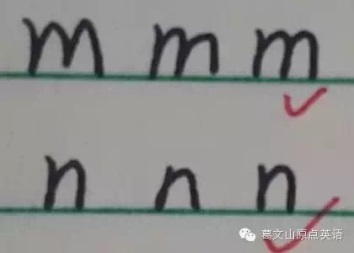 m m m
n n n
葛文山原点英语